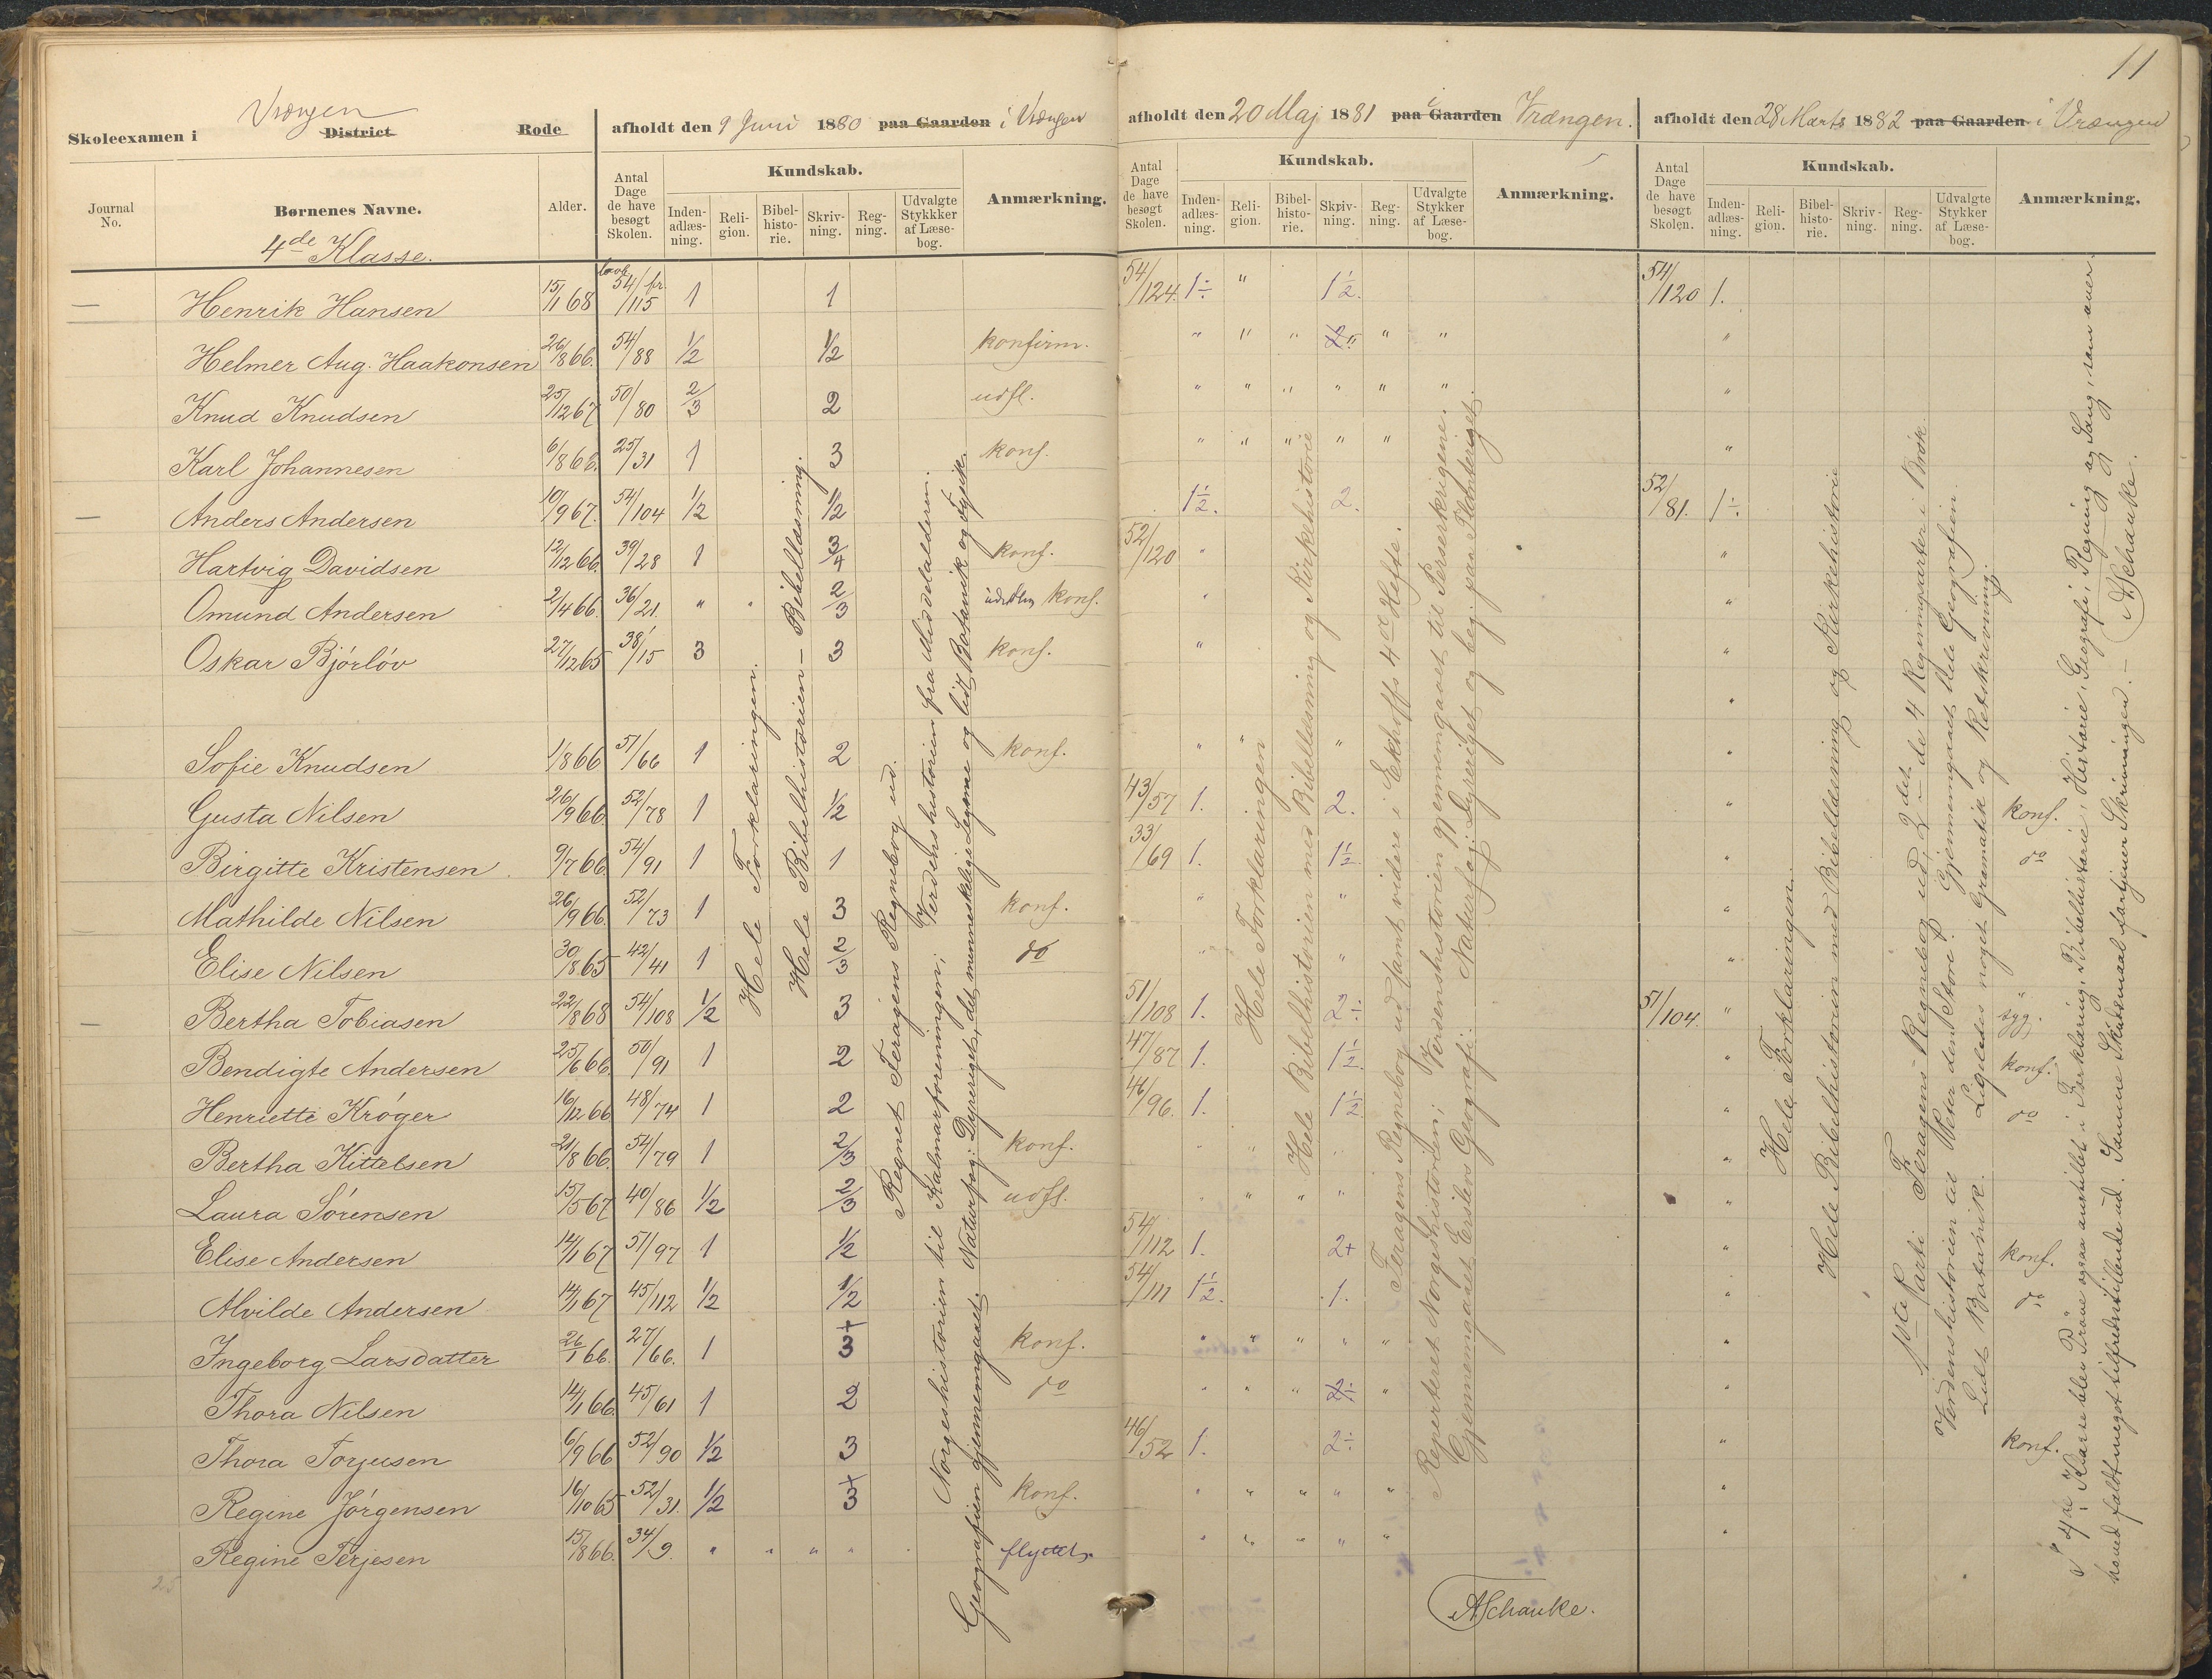 11
Skoleexamen i Vrængen District Rode afholdt den 9 Juni 1880 paa Gaarden i Vrængen
afholdt den 20 Maj 1881 paa Gaarden i Vrængen.
afholdt den 28 Marts 1882 paa Gaarden i Vrængen
Journal No. Børnenes Navne. Alder. Antal Dage de have besøgt Skolen. Kundskab. Inden-adlæs-ning. Reli-gion. Bibel-histo-rie. Skriv-ning. Reg-ning. Udvalgte Stykkker af Læse-bog. Anmærkning.
Antal Dage de have besøgt Skolen. Kundskab. Inden-adlæs-ning. Reli-gion. Bibel-histo-rie. Skriv-ning. Reg-ning. Udvalgte Stykker af Læse-bog. Anmærkning.
Antal Dage de have besøgt Skolen. Kundskab. Inden-adlæs-ning. Reli-gion. Bibel-histo-rie. Skriv-ning. Reg-ning. Udvalgte Stykker af Læse-bog. Anmærkning.
4de Klasse.
— Henrik Hansen 15/1 68 54/115 1 1 54/124 1÷ " 1½. 54/120 1.
Helmer Aug. Haakonsen 26/8 66. 54/88 ½ ½ konfirm. " " " 2 " " " "
Knud Knudsen 25/12 67 50/80 2/3 2 udfl. " " " " " " "
Karl Johannesen 6/8 66. 25/31 1 3 konf. " " " " " "
— Anders Andersen 10/9 67. 54/104 ½ ½ 1½. 2. 52/81. 1÷.
Hartvig Davidsen 12/12 66. 39/28 1 3/4 konf. 52/120 " "
Omund Andersen 2/4 66. 36/21. " " 2/3 konf. " "
Oskar Bjórlóv 27/12 65 38/15 3 3 konf. " "
Sofie Knudsen 1/8 66 51/66 1 2 konf. " " " "
Gusta Nilsen 26/9 66. 52/78 1 ½ 43/57 1. 2. " konf.
Birgitte Kristensen 9/7 66. 54/91 1 1 33/69 1. 1½. " do
Mathilde Nilsen 26/9 66. 52/73 1 3 konf. " " "
Elise Nilsen 30/8 65 42/41 1 2/3 do " " "
— Bertha Tobiasen 22/8 68 54/108 ½ 3 51/108 1. 2÷ 51/104. " syg.
Bendigte Andersen 25/6 66. 50/91 1 2 47/87 1. 1½. " konf.
Henriette Króger 16/12 66 48/74 1 2 46/96. 1. 1½ " do
Bertha Kittelsen 21/8 66. 54/79 1 2/3 konf. " " " "
Laura Sórensen 15/5 67 40/86 ½ 2/3 udfl. " " " " "
Elise Andersen 14/1 67 51/97 1 ½ 54/112 1. 2+ " konf.
Alvilde Andersen 14/1 67 45/112 ½ ½ 54/111 1½. 1. " do
Ingeborg Larsdatter 26/1 66. 27/66. 1 3+ konf. " " " " " "
Thora Nilsen 14/1 66. 45/61 1 2 do " " " 2÷ " "
Thora Torjusen 6/9 66 52/90 ½ 3 46/52 1. 2÷ " konf.
Regine Jórgensen 16/10 65 52/31. ½ 3+ konf. " " " " " "
Regine Terjesen 15/8 66. 34/9. " " " " flyttet. " " " " " "
25
Hele Forklaringen.
Hele Bibelhistorien – Bibellæsning.
Regnet Feragens Regnebog ud.
Norgeshistorien til Kalmarforeningen; Verdenshistorien fra Middelalderen.
Geografien gjennemgaaet. Naturfag: Dyreriget, det menneskelige Legeme og lidt Botanik og Fysik.
Hele Forklaringen
Hele Bibelhistorien med Bibellæsning og Kirkehistorie
Feragens Regnebog ud samt videre i Ekhoffs 4de Hefte.
Reperteret Norgeshistorien; Verdenshistorien gjennemgaaet til Perserkrigene.
Gjennemgaaet Erslevs Geografi. Naturfag: Dyreriget og beg. paa Planteriget.
ASchanke.
Hele Forklaringen.
Hele Bibelhistorien med Bibellæsning og Kirkehistorie
1ste Parti Feragens Regnebog ud, 2det de 4 Regningsarter i Brók
Verdenshistorien til Peter den Store. Gjennemgaaet Hele Geografien.
Lidt Botanik. Ligeledes noget Gramatik og Retskrivning.
I 4de Klasse blev Próve ogsaa anstillet i Forklaring, Bibelhistorie, Historie, Geografi, Regning og Sang, som over-
hoved faldt meget tilfredsstillende ud. Samme Skudsmaal fortjener Skrivningen. —
ASchanke.